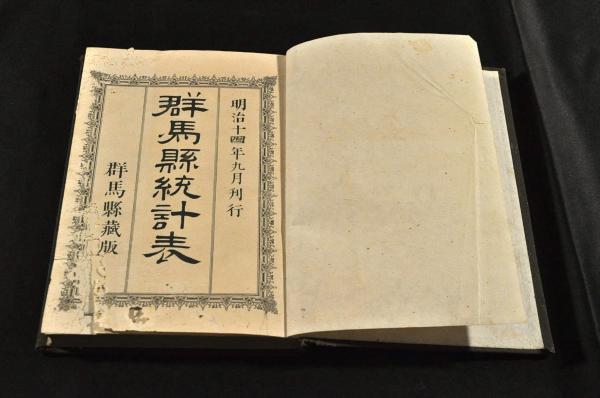 明治十四年九月刊行
群馬縣統計表
群馬縣藏版